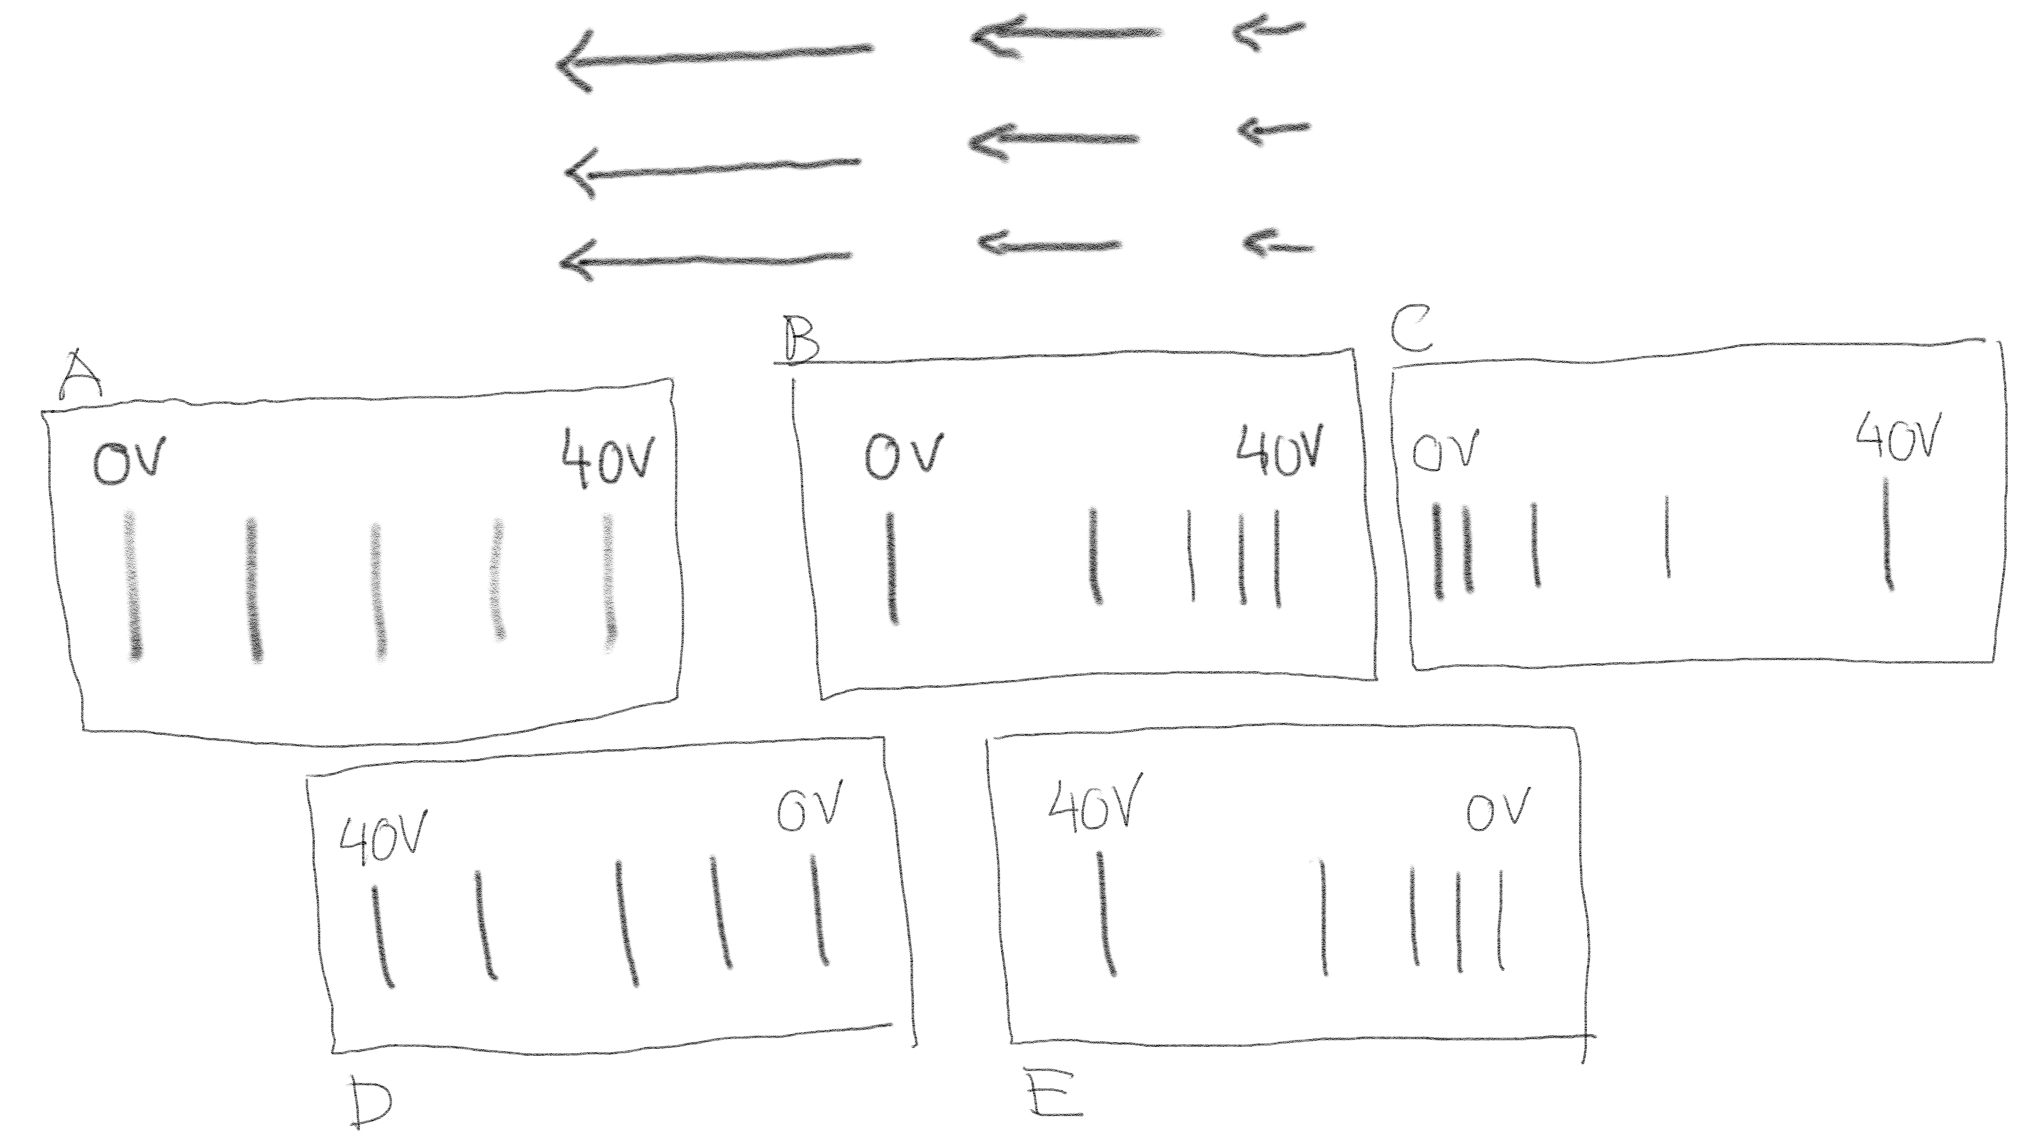 A
B
C
0V 40V
0V 40V
0V 40V
40V 0V
40V 0V
D
E